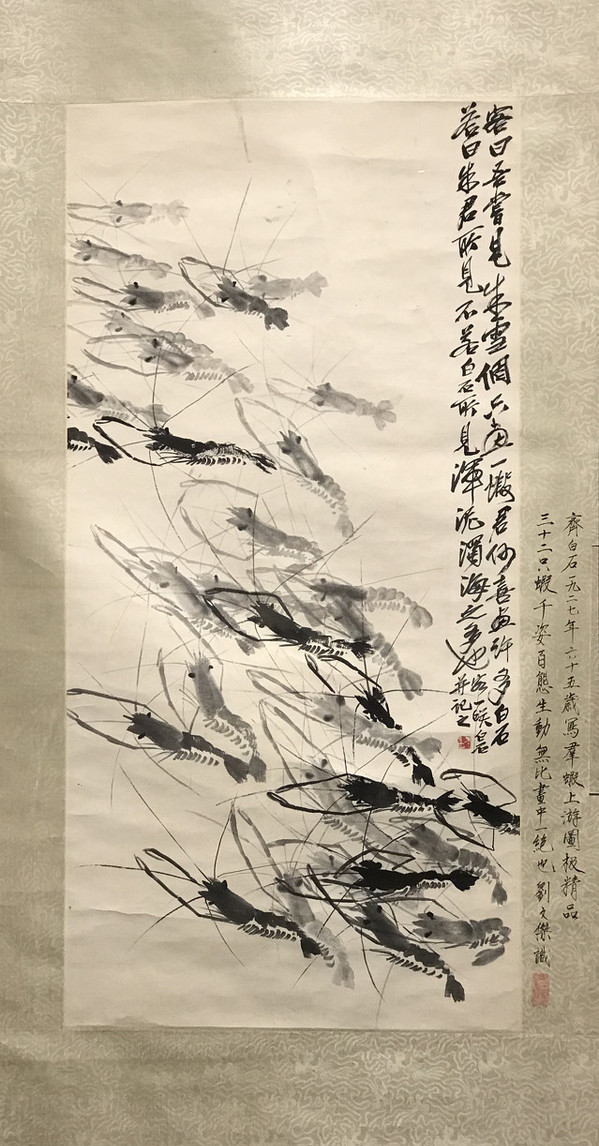 客曰吾嘗見朱雪個只畫一蝦君何喜畫許多白石
答曰朱君所見不若白石所見渾泥濁海之多也
客一笑白石
并記之
齊白石一九二七年六十五歲寫羣蝦上游圖极精品
三十二只蝦千姿百態生動無比畫中一絕也劉文傑識